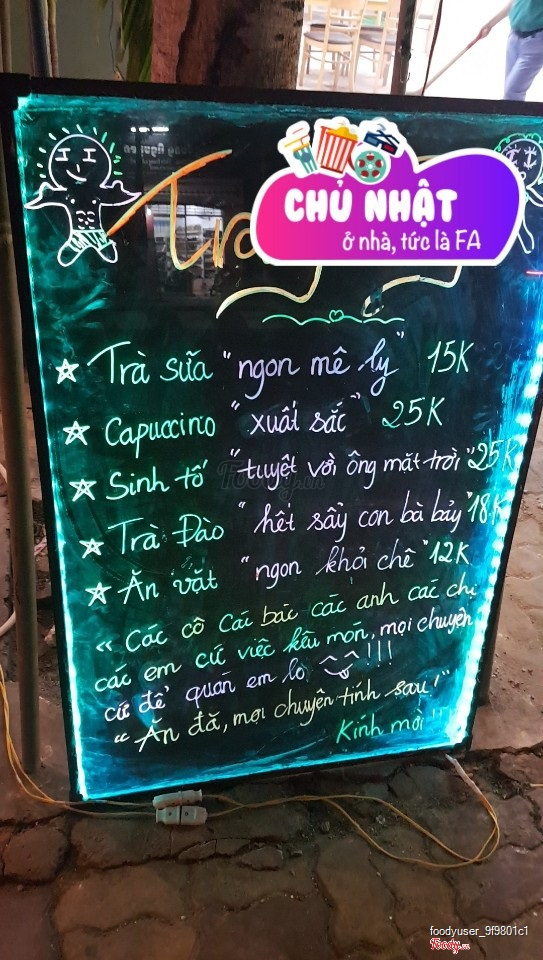 CHỦ NHẬT
ở nhà, tức là FA
Trà sữa "ngon mê ly" 15K
Capuccino "xuất sắc" 25K
Sinh tố "tuyệt vời ông mặt trời" 25K
Trà Đào "hết sẩy con bà bảy" 18K
Ăn vặt "ngon khỏi chê" 12K
"Các cô các bác các anh các chị
các em cứ việc kêu món, mọi chuyện
cứ để quán em lo !!!
"Ăn đã, mọi chuyện tính sau!"
Kính mời !!!
Foody.vn
foodyuser_9f9801c1
Foody.vn